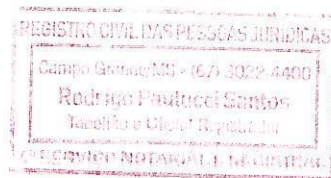 REGISTRO CIVIL DAS PESSOAS JURIDICAS
Campo Grande/MS - (67) 3022-4400
Rodrigo Paulucci Santos
Tabelião e Oficial Registrador
SERVIÇO NOTARIAL E REGISTRAL